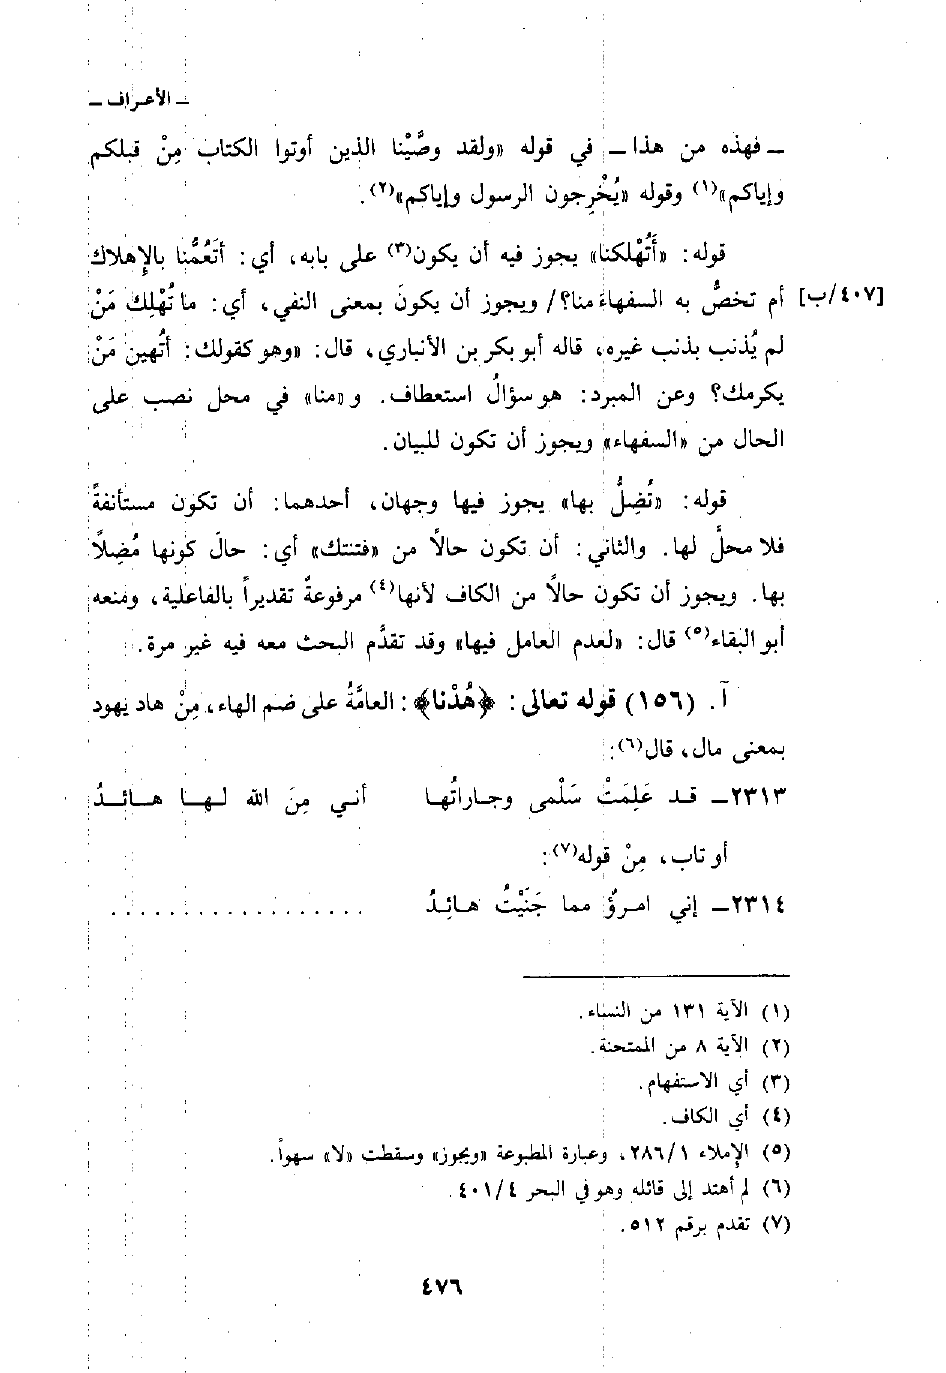 ـ الأعراف ـ
ـ فهذه من هذا ـ في قوله «ولقد وصَّيْنا الذين أوتوا الكتاب مِنْ قبلكم
وإياكم»(١) وقوله «يُخْرِجون الرسول وإياكم»(٢).
قوله: «أَتُهْلكنا» يجوز فيه أن يكون(٣) على بابه، أي: أتَعُمُّنا بالإِهلاك
[٤٠٧/ب] أم تخصُّ به السفهاء منا؟/ ويجوز أن يكونَ بمعنى النفي، أي: ما تُهْلِك مَنْ
لم يُذنب بذنب غيره، قاله أبو بكر بن الأنباري، قال: «وهو كقولك: أتُهين مَنْ
يكرمك؟ وعن المبرد: هو سؤالُ استعطاف. و «منا» في محل نصب على
الحال من «السفهاء» ويجوز أن تكون للبيان.
قوله: «تُضِلُّ بها» يجوز فيها وجهان، أحدهما: أن تكون مستأنفةً
فلا محلَّ لها. والثاني: أن تكون حالاً من «فتنتك» أي: حالَ كونها مُضِلاًّ
بها. ويجوز أن تكون حالاً من الكاف لأنها(٤) مرفوعةٌ تقديراً بالفاعلية، ومنعه
أبو البقاء(٥) قال: «لعدم العامل فيها» وقد تقدَّم البحث معه فيه غير مرة.
آ. (١٥٦) قوله تعالى: ﴿هُدْنا﴾: العامَّةُ على ضم الهاء، مِنْ هاد يهود
بمعنى مال، قال(٦):
٢٣١٣ـ قد عَلِمَتْ سَلْمى وجاراتُها أني مِنَ الله لها هائدُ
أو تاب، مِنْ قوله(٧):
٢٣١٤ـ إني امرؤٌ مما جَنَيْتُ هائِدُ ..................
(١) الآية ١٣١ من النساء.
(٢) الآية ٨ من الممتحنة.
(٣) أي الاستفهام.
(٤) أي الكاف.
(٥) الإِملاء ٢٨٦/١، وعبارة المطبوعة «ويجوز» وسقطت «لا» سهواً.
(٦) لم أهتد إلى قائله وهو في البحر ٤٠١/٤.
(٧) تقدم برقم ٥١٢.
٤٧٦